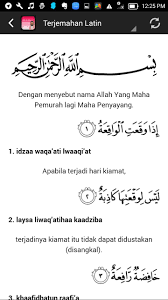 12:25 PM
Terjemahan Latin
بِسْمِ اللَّهِ الرَّحْمَٰنِ الرَّحِيمِ
Dengan menyebut nama Allah Yang Maha
Pemurah lagi Maha Penyayang.
إِذَا وَقَعَتِ الْوَاقِعَةُ ﴿١﴾
1. idzaa waqa'ati lwaaqi'at
Apabila terjadi hari kiamat,
لَيْسَ لِوَقْعَتِهَا كَاذِبَةٌ ﴿٢﴾
2. laysa liwaq'atihaa kaadziba
terjadinya kiamat itu tidak dapat didustakan
(disangkal).
خَافِضَةٌ رَافِعَةٌ ﴿٣﴾
3. khaafidhatun raafi'a